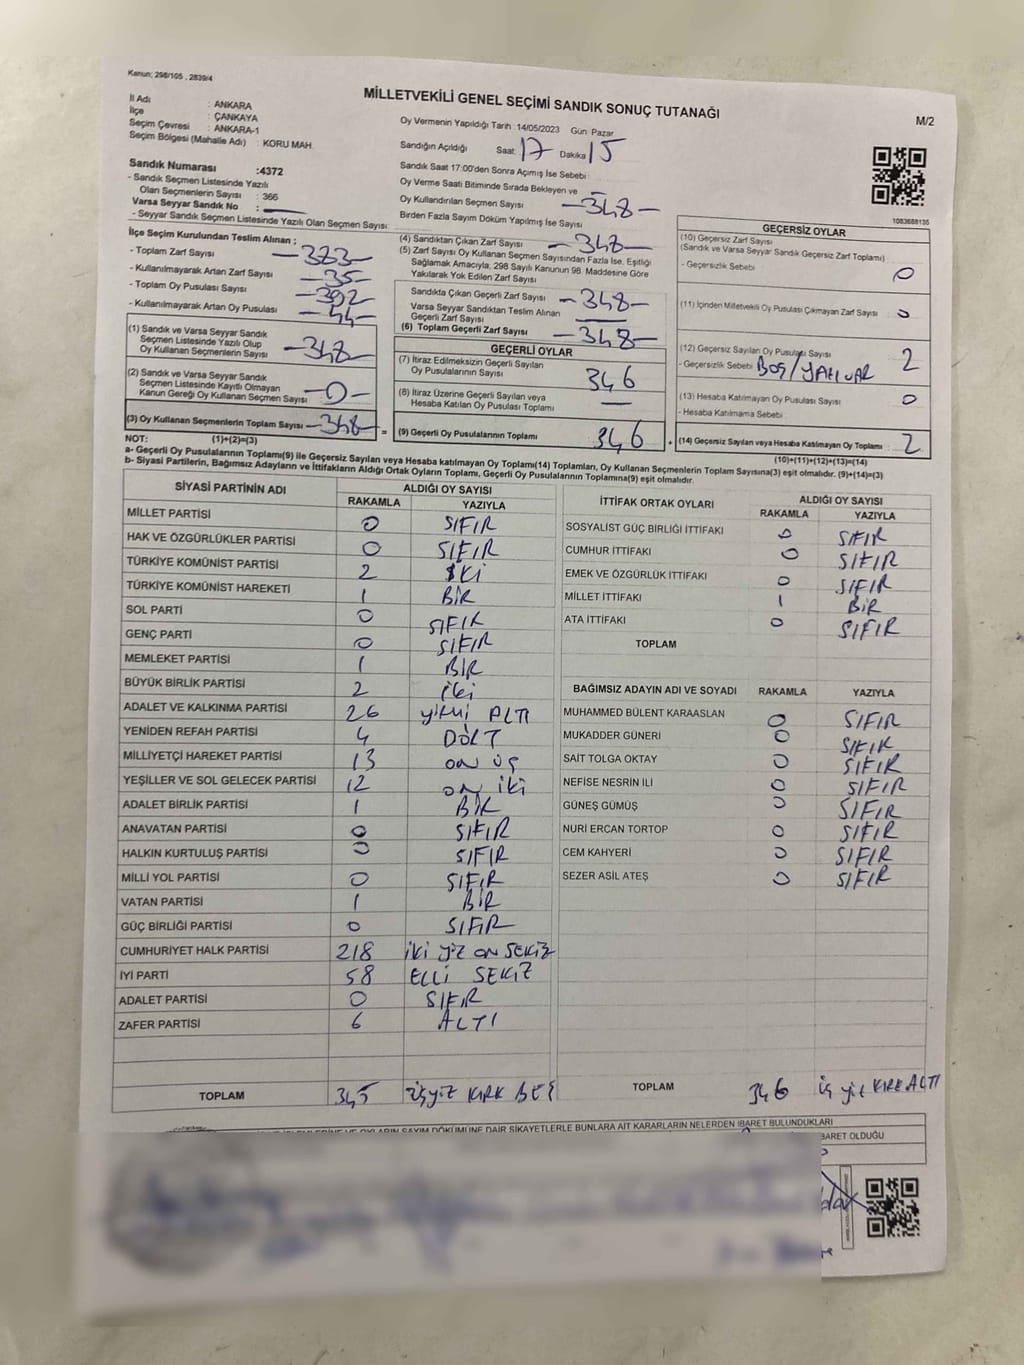 Kanun; 298/105 , 2839/4
MİLLETVEKİLİ GENEL SEÇİMİ SANDIK SONUÇ TUTANAĞI
M/2
İl Adı : ANKARA
İlçe : ÇANKAYA
Seçim Çevresi : ANKARA-1
Seçim Bölgesi (Mahalle Adı) : KORU MAH.
Oy Vermenin Yapıldığı Tarih :14/05/2023 Gün Pazar
Sandığın Açıldığı Saat: 17 Dakika 15
Sandık Saat 17:00'den Sonra Açımış İse Sebebi :
Oy Verme Saati Bitiminde Sırada Bekleyen ve
Oy Kullandırılan Seçmen Sayısı
Birden Fazla Sayım Döküm Yapılmış İse Sayısı
Sandık Numarası :4372
- Sandık Seçmen Listesinde Yazılı
Olan Seçmenlerin Sayısı : 366
Varsa Seyyar Sandık No :
- Seyyar Sandık Seçmen Listesinde Yazılı Olan Seçmen Sayısı:
1083688135
İlçe Seçim Kurulundan Teslim Alınan ;
- Toplam Zarf Sayısı -383-
- Kullanılmayarak Artan Zarf Sayısı -35-
- Toplam Oy Pusulası Sayısı -392-
- Kullanılmayarak Artan Oy Pusulası -44-
(1) Sandık ve Varsa Seyyar Sandık
Seçmen Listesinde Yazılı Olup
Oy Kullanan Seçmenlerin Sayısı -348-
(2) Sandık ve Varsa Seyyar Sandık
Seçmen Listesinde Kayıtlı Olmayan
Kanun Gereği Oy Kullanan Seçmen Sayısı -0-
(3) Oy Kullanan Seçmenlerin Toplam Sayısı -348-
-348-
(4) Sandıktan Çıkan Zarf Sayısı -348-
(5) Zarf Sayısı Oy Kullanan Seçmen Sayısından Fazla İse, Eşitliği
Sağlamak Amacıyla, 298 Sayılı Kanunun 98. Maddesine Göre
Yakılarak Yok Edilen Zarf Sayısı
Sandıkta Çıkan Geçerli Zarf Sayısı -348-
Varsa Seyyar Sandıktan Teslim Alınan
Geçerli Zarf Sayısı
(6) Toplam Geçerli Zarf Sayısı -348-
GEÇERLİ OYLAR
(7) İtiraz Edilmeksizin Geçerli Sayılan
Oy Pusulalarının Sayısı 346
(8) İtiraz Üzerine Geçerli Sayılan veya
Hesaba Katılan Oy Pusulası Toplamı —
= (9) Geçerli Oy Pusulalarının Toplamı 346
GEÇERSİZ OYLAR
(10) Geçersiz Zarf Sayısı
(Sandık ve Varsa Seyyar Sandık Geçersiz Zarf Toplamı)
- Geçersizlik Sebebi : 0
(11) İçinden Milletvekili Oy Pusulası Çıkmayan Zarf Sayısı 0
(12) Geçersiz Sayılan Oy Pusulası Sayısı 2
- Geçersizlik Sebebi BOŞ/
(13) Hesaba Katılmayan Oy Pusulası Sayısı 0
- Hesaba Katılmama Sebebi :
(14) Geçersiz Sayılan veya Hesaba Katılmayan Oy Toplamı : 2
NOT: (1)+(2)=(3) (10)+(11)+(12)+(13)=(14)
a- Geçerli Oy Pusulalarının Toplamı(9) ile Geçersiz Sayılan veya Hesaba katılmayan Oy Toplamı(14) Toplamları, Oy Kullanan Seçmenlerin Toplam Sayısına(3) eşit olmalıdır. (9)+(14)=(3)
b- Siyasi Partilerin, Bağımsız Adayların ve İttifakların Aldığı Ortak Oyların Toplamı, Geçerli Oy Pusulalarının Toplamına(9) eşit olmalıdır.
SİYASİ PARTİNİN ADI ALDIĞI OY SAYISI
RAKAMLA YAZIYLA
MİLLET PARTİSİ 0 SIFIR
HAK VE ÖZGÜRLÜKLER PARTİSİ 0 SIFIR
TÜRKİYE KOMÜNİST PARTİSİ 2 İKİ
TÜRKİYE KOMÜNİST HAREKETİ 1 BİR
SOL PARTİ 0 SIFIR
GENÇ PARTİ 0 SIFIR
MEMLEKET PARTİSİ 1 BİR
BÜYÜK BİRLİK PARTİSİ 2 iki
ADALET VE KALKINMA PARTİSİ 26 yirmi ALTI
YENİDEN REFAH PARTİSİ 4 DÖRT
MİLLİYETÇİ HAREKET PARTİSİ 13 on üç
YEŞİLLER VE SOL GELECEK PARTİSİ 12 on iki
ADALET BİRLİK PARTİSİ 1 BİR
ANAVATAN PARTİSİ 0 SIFIR
HALKIN KURTULUŞ PARTİSİ 0 SIFIR
MİLLİ YOL PARTİSİ 0 SIFIR
VATAN PARTİSİ 1 BİR
GÜÇ BİRLİĞİ PARTİSİ 0 SIFIR
CUMHURİYET HALK PARTİSİ 218 iki yüz on SEKİZ
İYİ PARTİ 58 ELLİ SEKİZ
ADALET PARTİSİ 0 SIFIR
ZAFER PARTİSİ 6 ALTI
TOPLAM 345 üçyüz KIRK BEŞ
İTTİFAK ORTAK OYLARI ALDIĞI OY SAYISI
RAKAMLA YAZIYLA
SOSYALİST GÜÇ BİRLİĞİ İTTİFAKI 0 SIFIR
CUMHUR İTTİFAKI 0 SIFIR
EMEK VE ÖZGÜRLÜK İTTİFAKI 0 SIFIR
MİLLET İTTİFAKI 1 BİR
ATA İTTİFAKI 0 SIFIR
TOPLAM
BAĞIMSIZ ADAYIN ADI VE SOYADI RAKAMLA YAZIYLA
MUHAMMED BÜLENT KARAASLAN 0 SIFIR
MUKADDER GÜNERİ 0 SIFIR
SAİT TOLGA OKTAY 0 SIFIR
NEFİSE NESRİN İLİ 0 SIFIR
GÜNEŞ GÜMÜŞ 0 SIFIR
NURİ ERCAN TORTOP 0 SIFIR
CEM KAHYERİ 0 SIFIR
SEZER ASİL ATEŞ 0 SIFIR
TOPLAM 346 üç yüz KIRK ALTI
OYLARIN SAYIM DÖKÜMÜNE DAİR ŞİKAYETLERLE BUNLARA AİT KARARLARIN NELERDEN İBARET BULUNDUKLARI
İBARET OLDUĞU